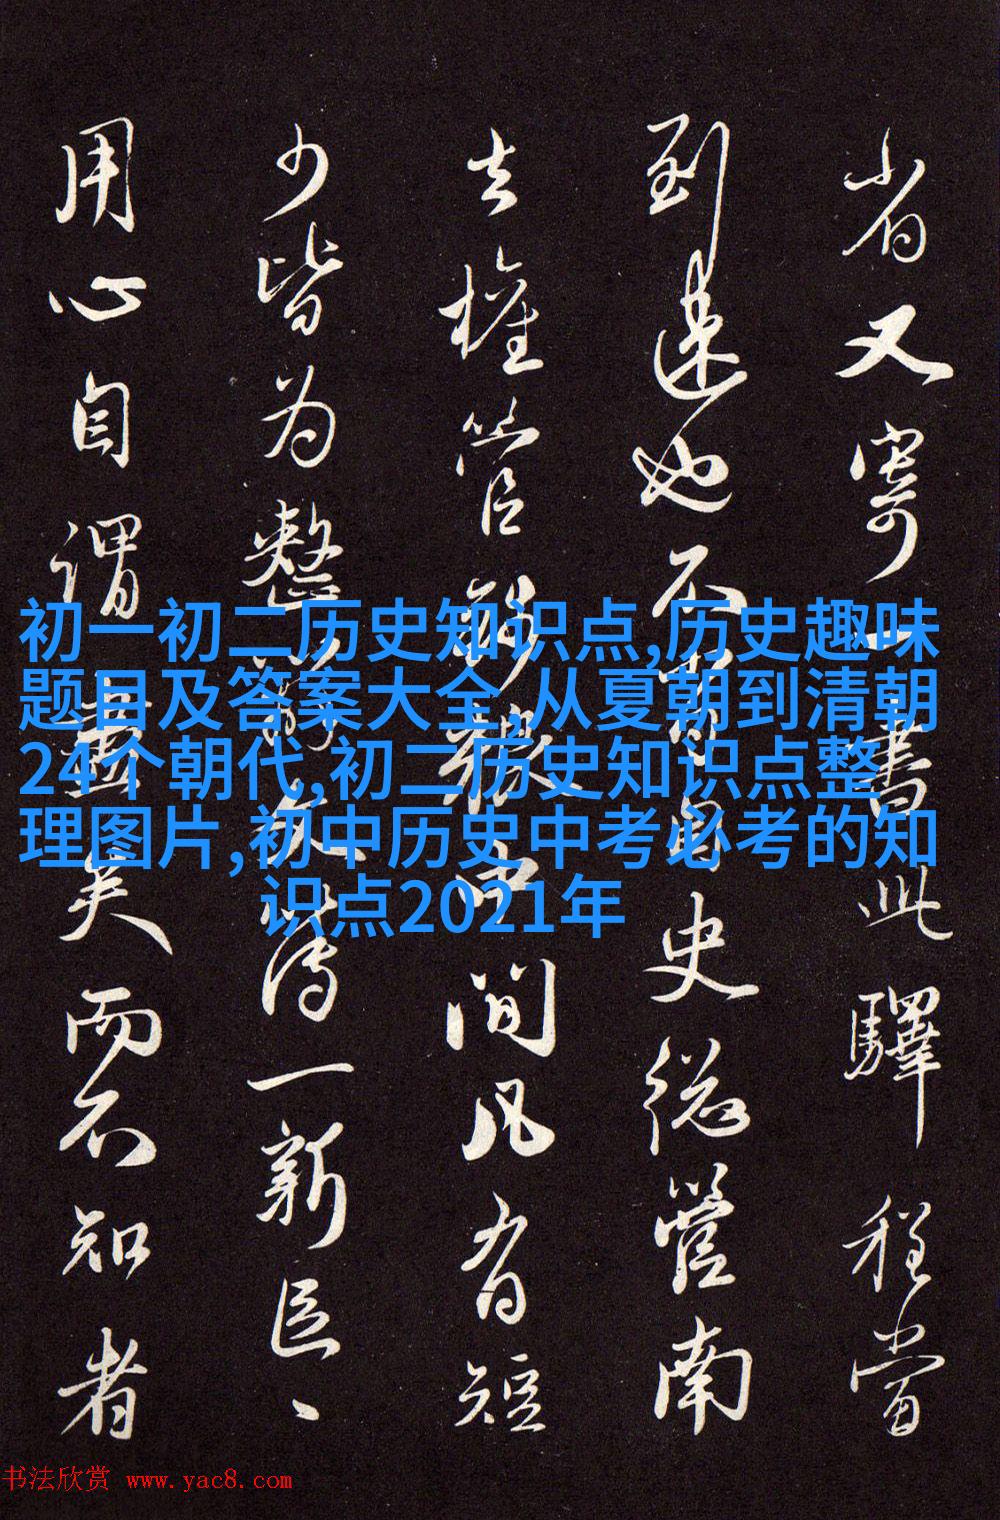 省又寄書此驛程當
到速也不自史總管南
去權管間凡有短
少皆為整一新
用心自謂盡矣而不知者
初一初二历史知识点,历史趣味
题目及答案大全,从夏朝到清朝
24个朝代,初二历史知识点整
理图片,初中历史中考必考的知
识点2021年
书法欣赏 www.yac8.com